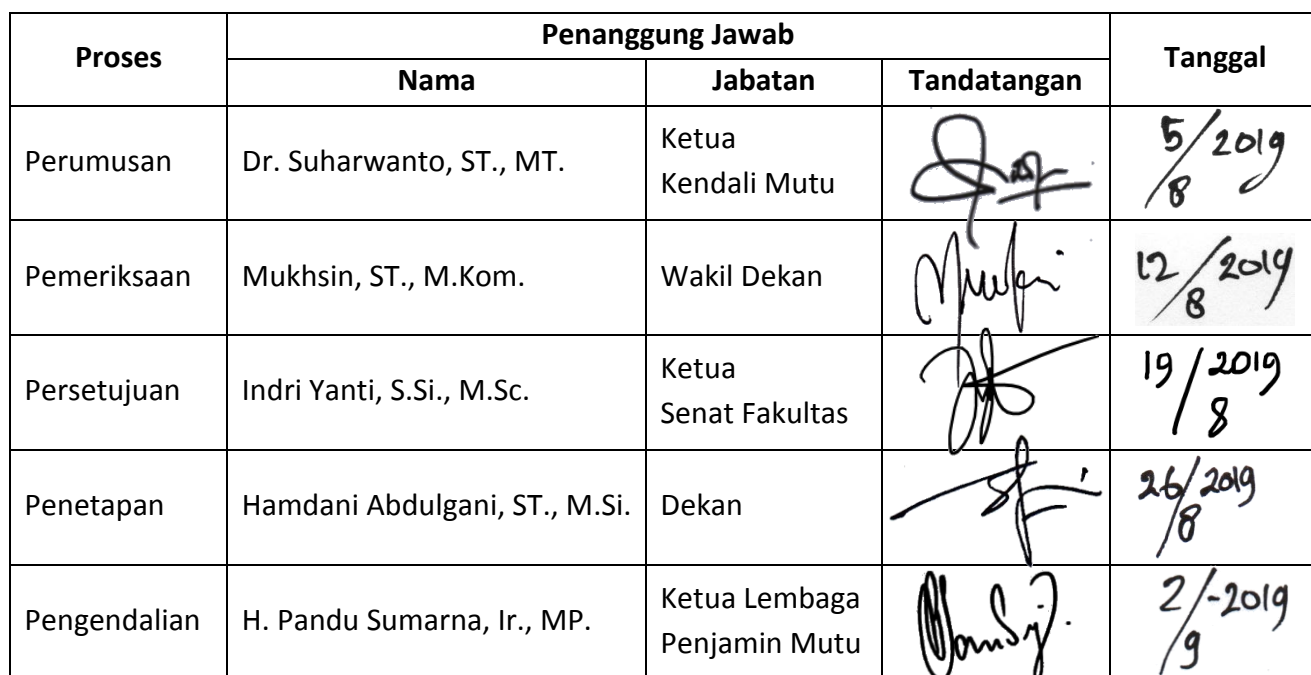 Proses Penanggung Jawab Tanggal
Nama Jabatan Tandatangan
Perumusan Dr. Suharwanto, ST., MT. Ketua Kendali Mutu 5/8 2019
Pemeriksaan Mukhsin, ST., M.Kom. Wakil Dekan 12/8 2019
Persetujuan Indri Yanti, S.Si., M.Sc. Ketua Senat Fakultas 19/8 2019
Penetapan Hamdani Abdulgani, ST., M.Si. Dekan 26/8 2019
Pengendalian H. Pandu Sumarna, Ir., MP. Ketua Lembaga Penjamin Mutu 2/9-2019